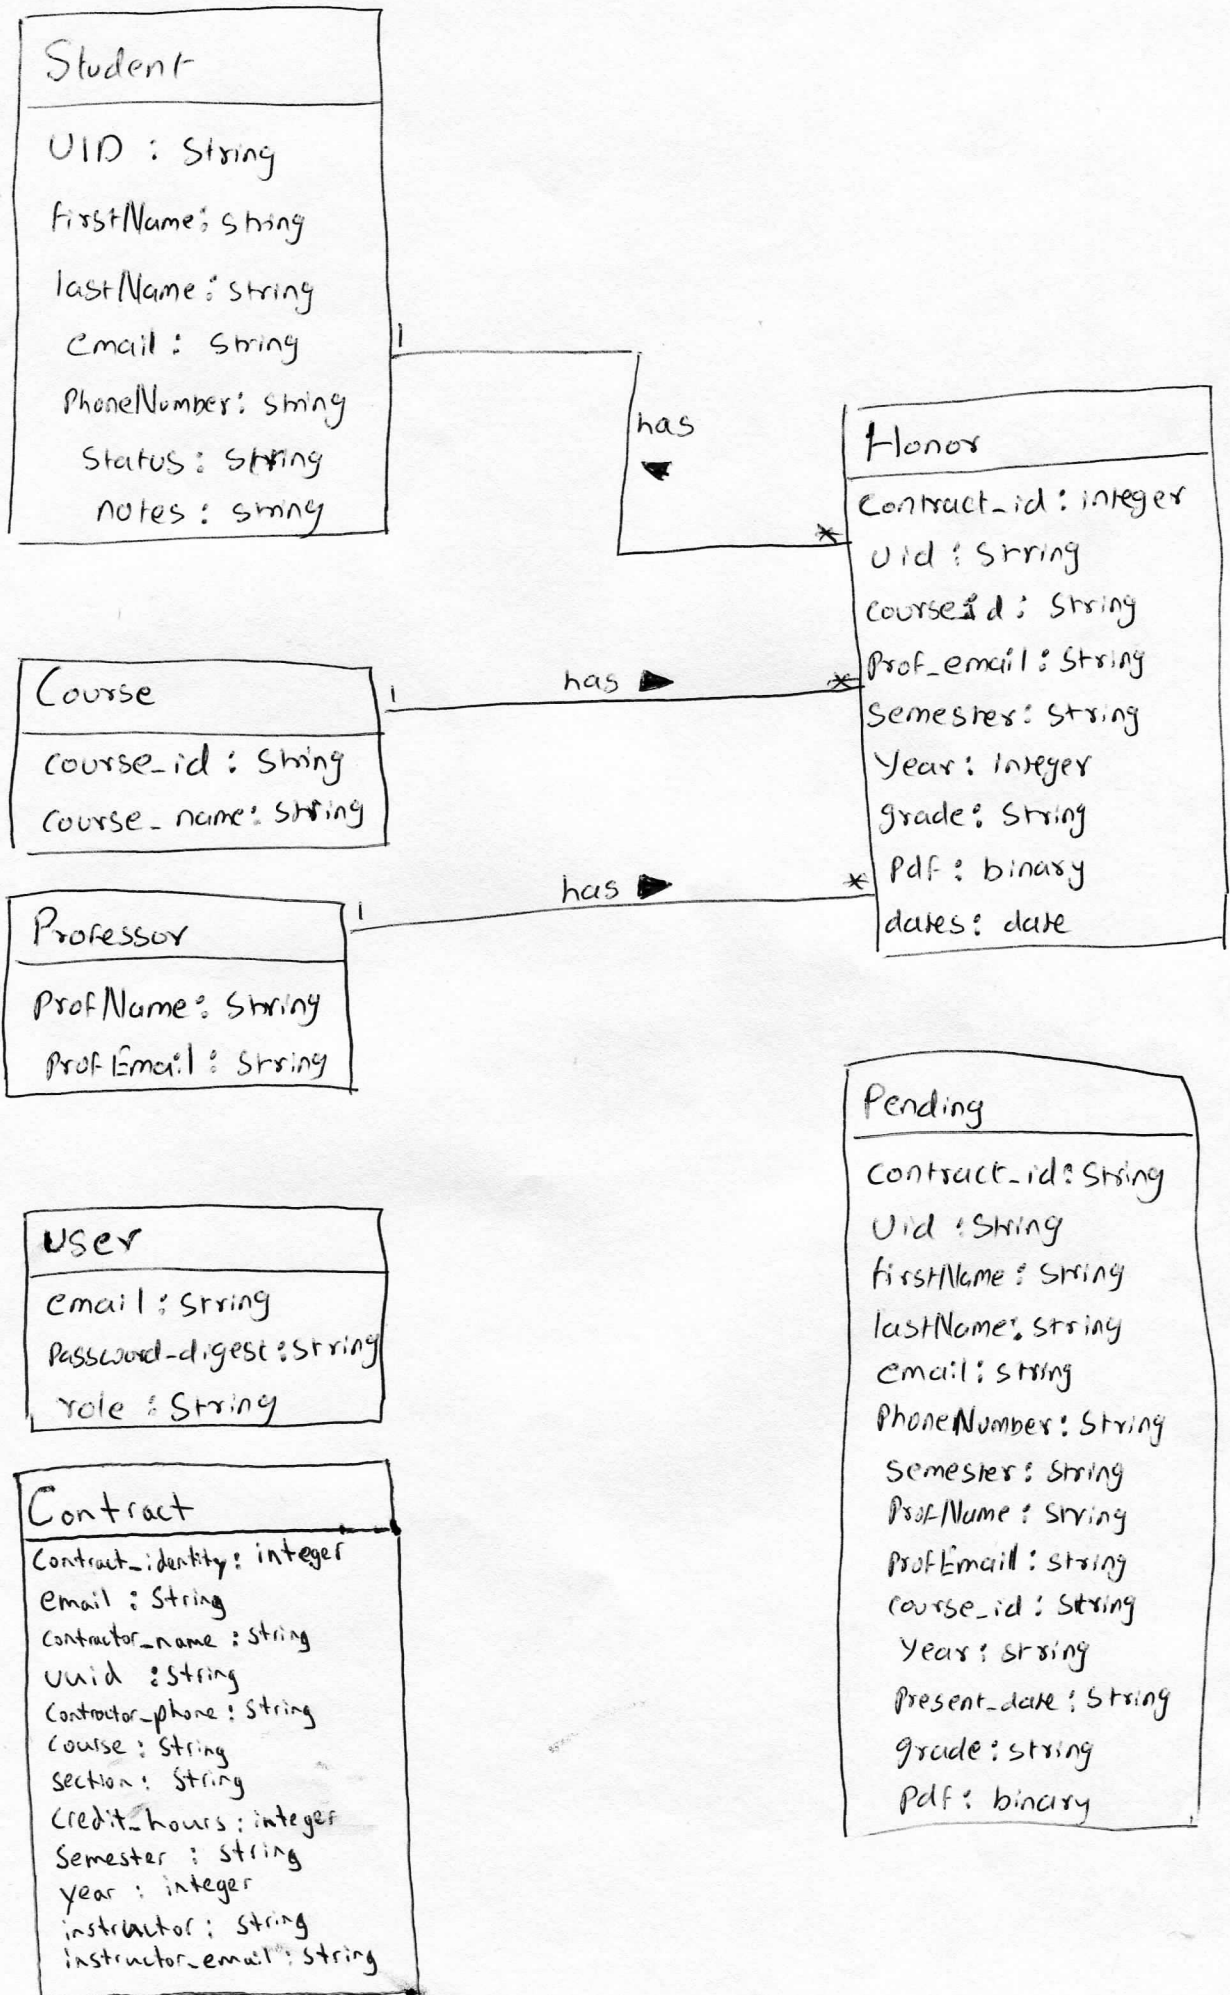 Student
UID : String
firstName: String
lastName: String
email: String
PhoneNumber: String
Status: String
notes: String
1
has
*
Honor
Contract_id: integer
Uid: String
courseid: String
Prof_email: String
Semester: String
Year: Integer
grade: String
Pdf: binary
dates: date
Course
course_id: String
course_name: String
1
has
*
Professor
ProfName: String
ProfEmail: String
1
has
*
User
email: String
Password_digest: String
role: String
Contract
Contract_identity: integer
email: String
Contractor_name: String
uuid: String
Contractor_phone: String
Course: String
Section: String
Credit_hours: integer
Semester: String
year: integer
instructor: String
instructor_email: String
Pending
Contract_id: String
Uid: String
firstName: String
lastName: String
email: String
PhoneNumber: String
Semester: String
ProfName: String
ProfEmail: String
course_id: String
Year: String
Present_date: String
grade: String
Pdf: binary